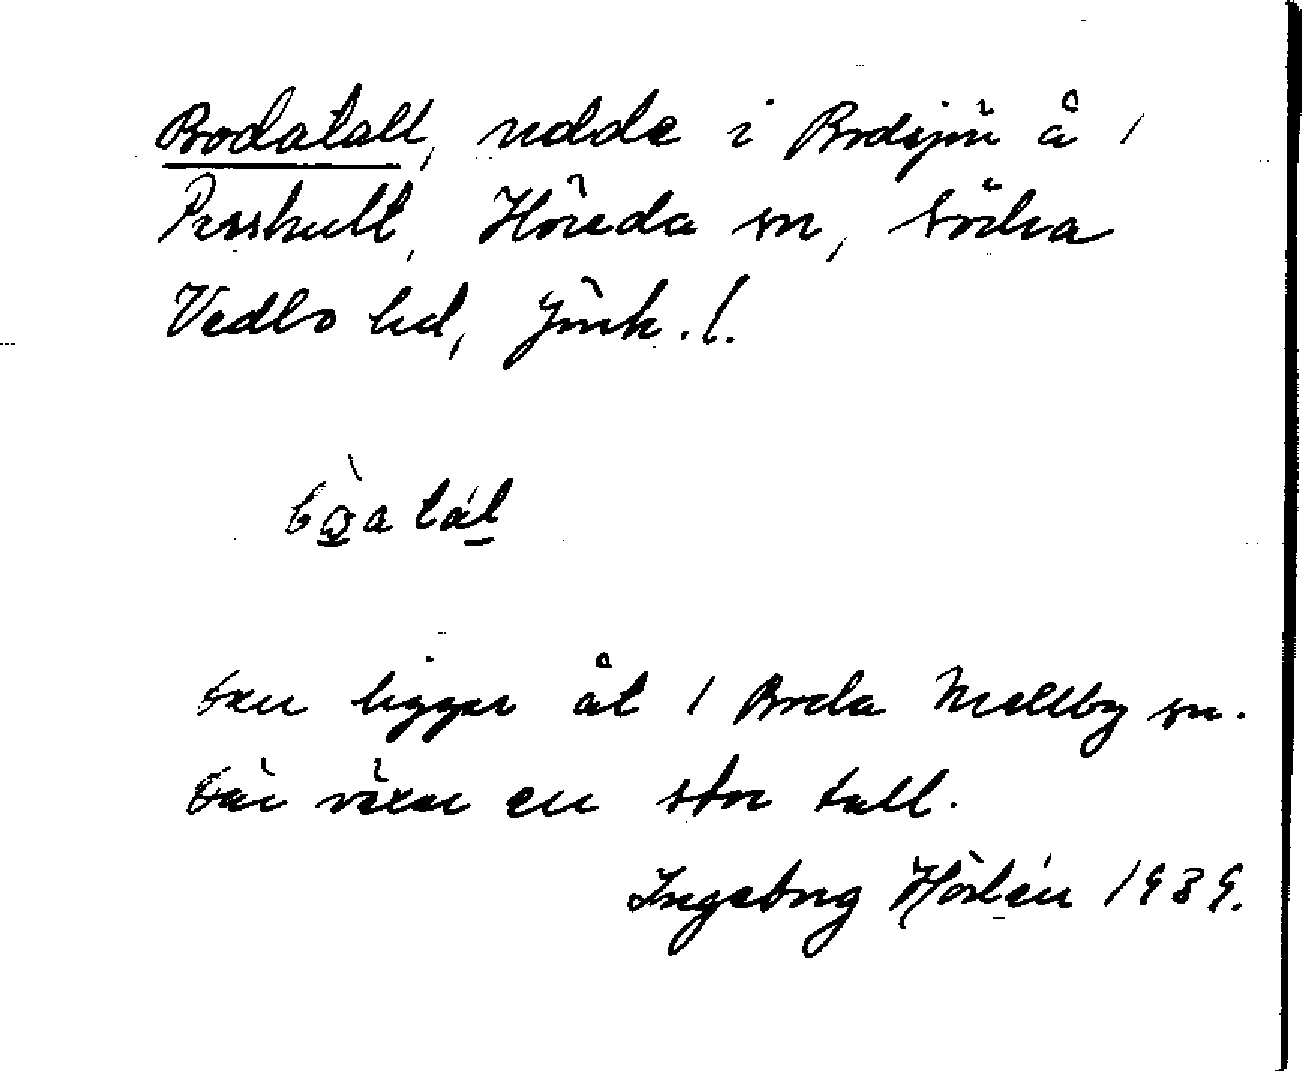 Bodatall, udde i Bodsjön å 1
Pesshult, Höreda sn, Södra
Vedbo hd, Jönk. l.
Den ligger åt 1 Boda Mellby sn.
Där växer en stor tall.
Ingeborg Hörlén 1939.